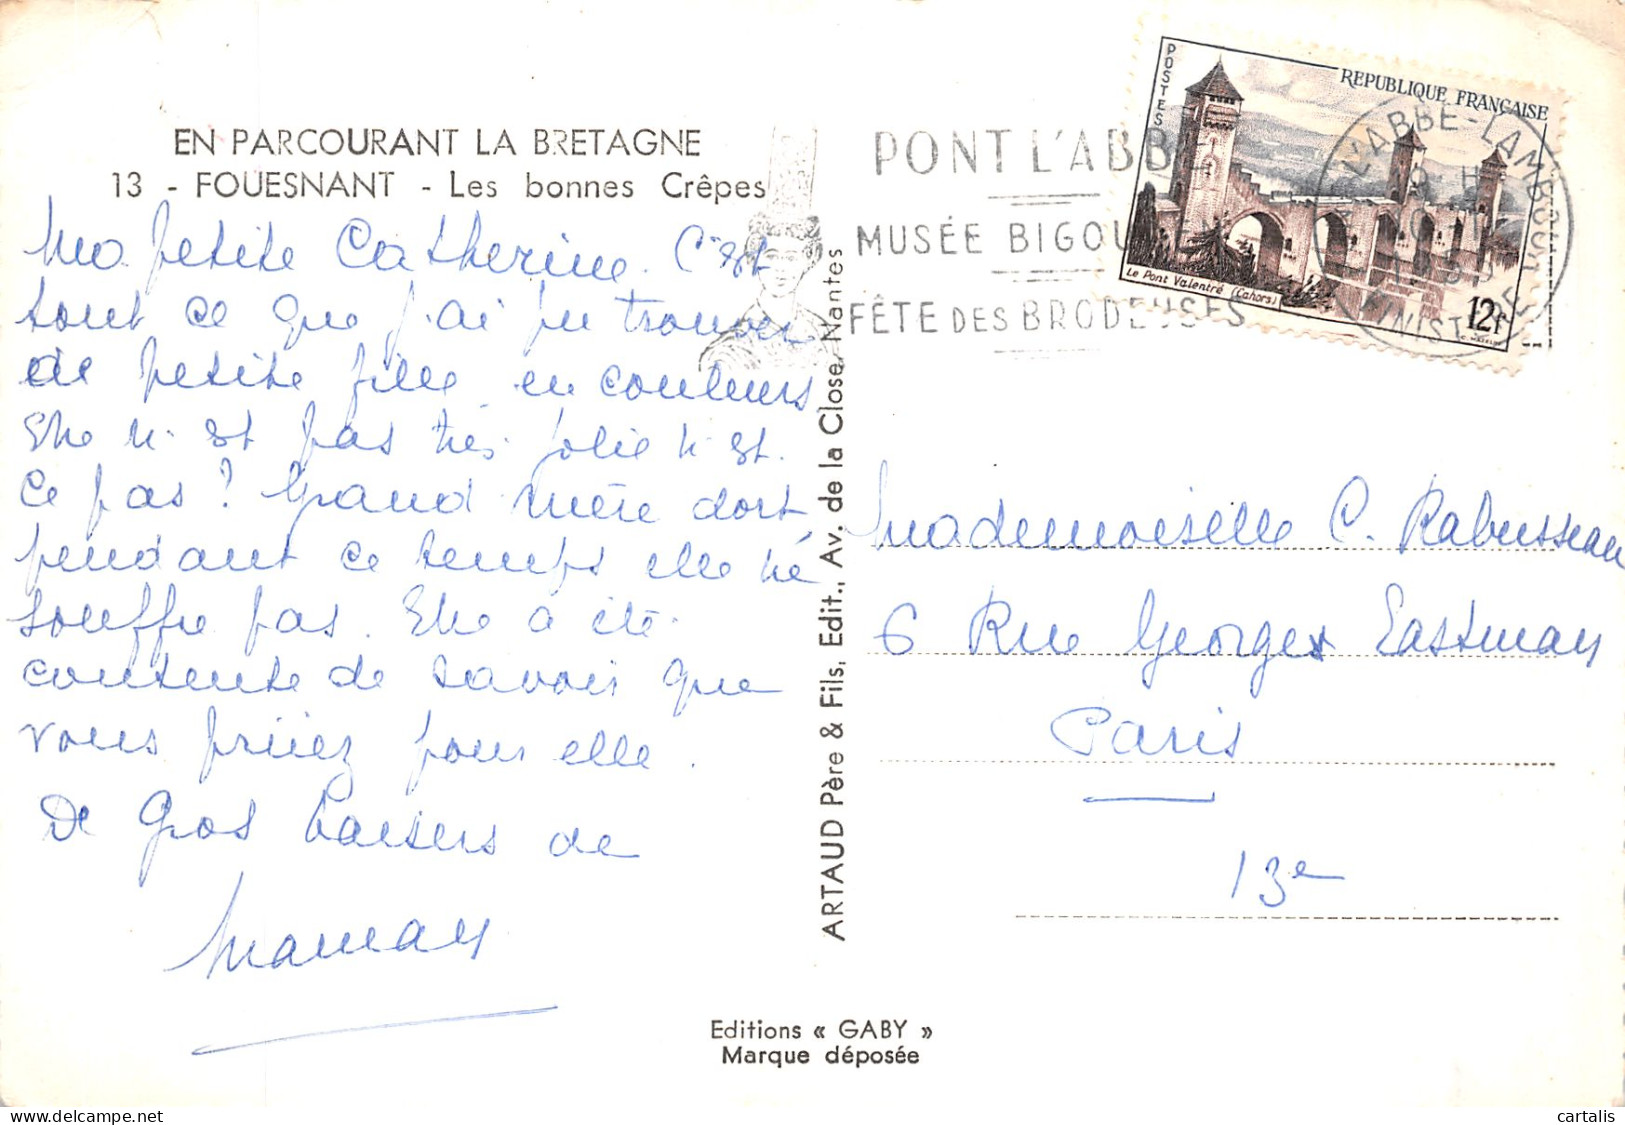 EN PARCOURANT LA BRETAGNE
13 - FOUESNANT - Les bonnes Crêpes
Ma petite Catherine. C'est
tout ce que j'ai pu trouver
de petite fille en couleurs
Elle n'est pas très jolie n'est
ce pas ? Grand mère dort
pendant ce temps elle ne
souffre pas. Elle a été
contente de savoir que
vous priiez pour elle.
De gros baisers de
Maman
ARTAUD Père & Fils, Edit., Av. de la Close, Nantes
Editions « GABY »
Marque déposée
PONT L'ABBE
MUSÉE BIGOU
FÊTE DES BRODEUSES
POSTES
REPUBLIQUE FRANÇAISE
Le Pont Valentré (Cahors)
12f
L'ABBÉ-LAMBOUR
FINISTERE
Mademoiselle C. Rabusseau
6 Rue Georges Eastman
Paris
13e
cartalis